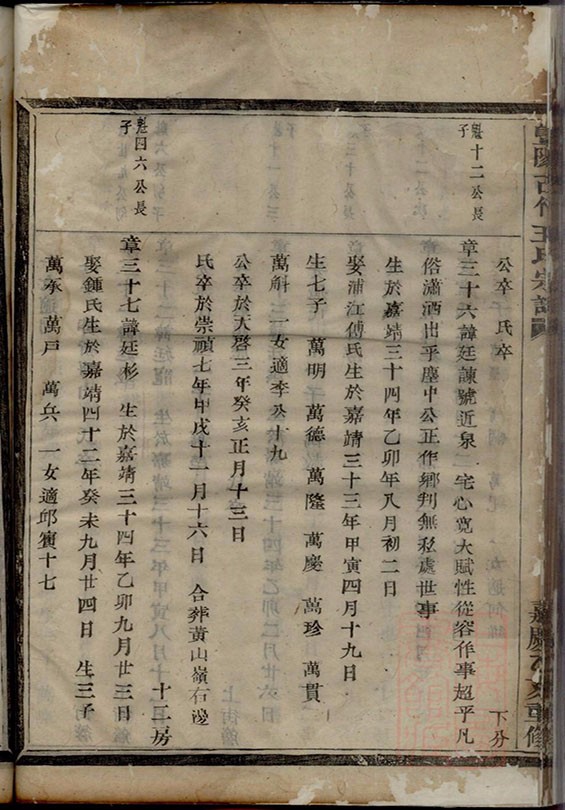 王氏宗譜
嘉慶乙亥重修
公卒 氏卒 下分
魁十二公長子
章三十六諱廷諫號近泉 宅心寬大賦性從容作事超乎凡
俗瀟洒出乎塵中公正作鄉判無私處世事
生於嘉靖三十四年乙卯年八月初二日
娶浦江傅氏生於嘉靖三十三年甲寅四月十九日
生七子 萬明 萬德 萬隆 萬慶 萬珍 萬貫
萬斛 一女適李公十九
公卒於天啓三年癸亥正月十三日
氏卒於崇禎七年甲戌十一月十六日 合葬黃山嶺右邊
十三房
魁四六公長子
章三十七諱廷杉 生於嘉靖三十四年乙卯九月廿三日
娶鍾氏生於嘉靖四十二年癸未九月廿四日 生三子
萬承 萬戸 萬兵 一女適邱賓十七